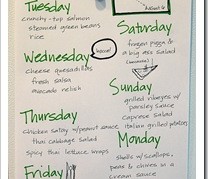 Tuesday
crunchy-top salmon
steamed green beans
rice
Wednesday
cheese quesadillas
fresh salsa
avocado relish
Thursday
chicken satay w/peanut sauce
thai cabbage salad
spicy thai lettuce wraps
Friday
August 6
Saturday
frozen pizza &
a big ass salad
Sunday
grilled ribeyes w/
parsley sauce
caprese salad
italian grilled potatoes
Monday
shells w/scallops,
peas & chives in a
cream sauce